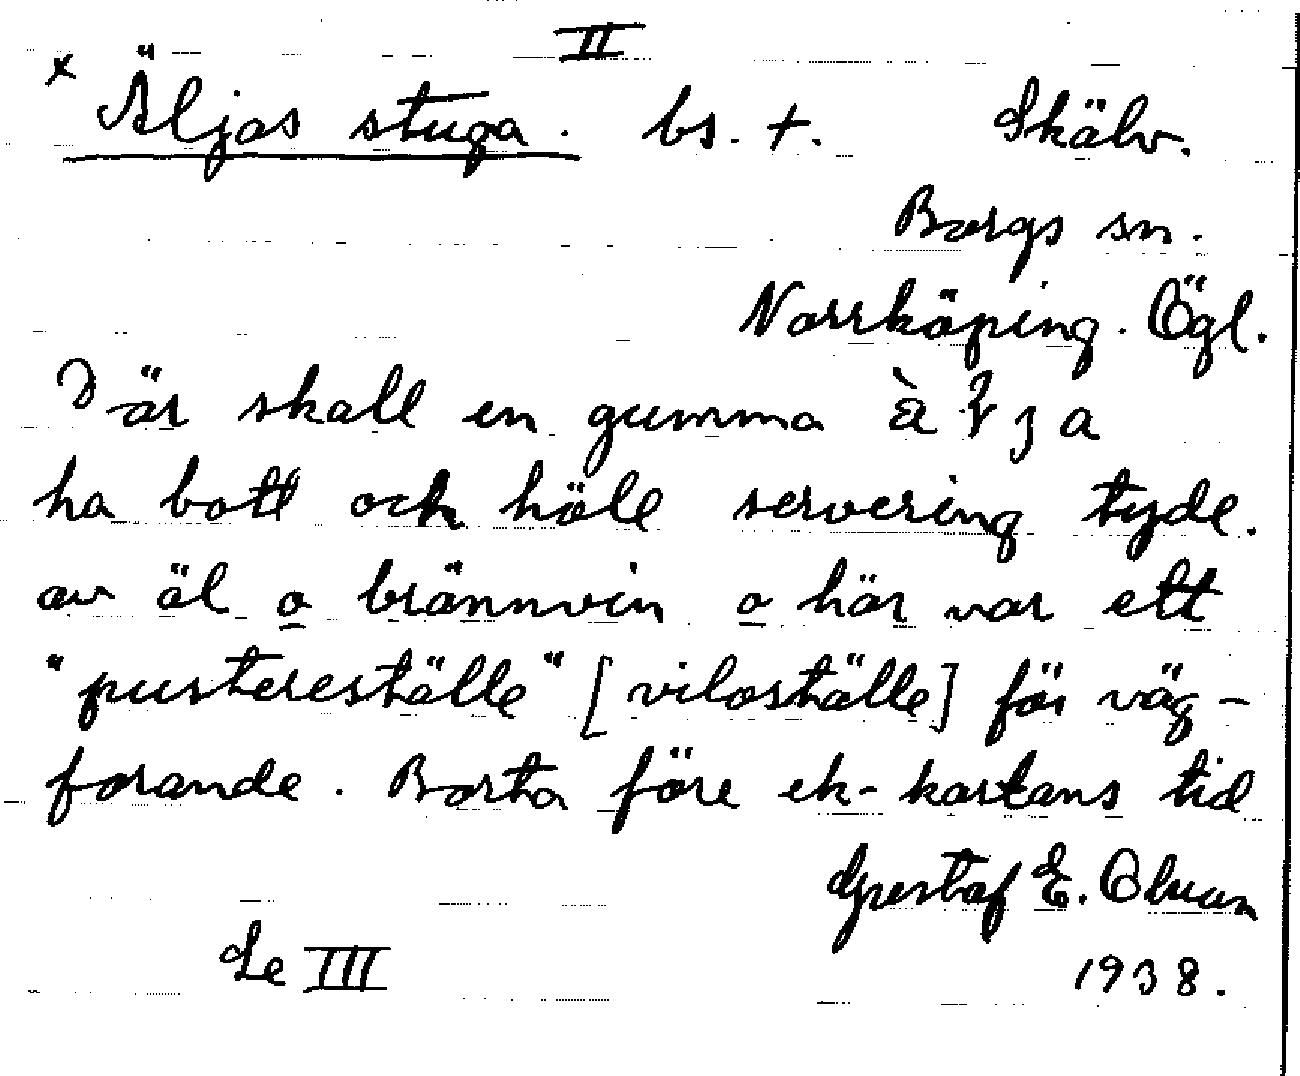 II
x Äljas stuga. bs. +. Skälv.
Borgs sn.
Norrköping. Ögl.
Där skall en gumma
ha bott och hölle servering tyde.
av äl o brännvin o här var ett
"pustereställe" [viloställe] för väg-
farande. Borta före ek-kartans tid
Gustaf E. Olsson
Se III 1938.